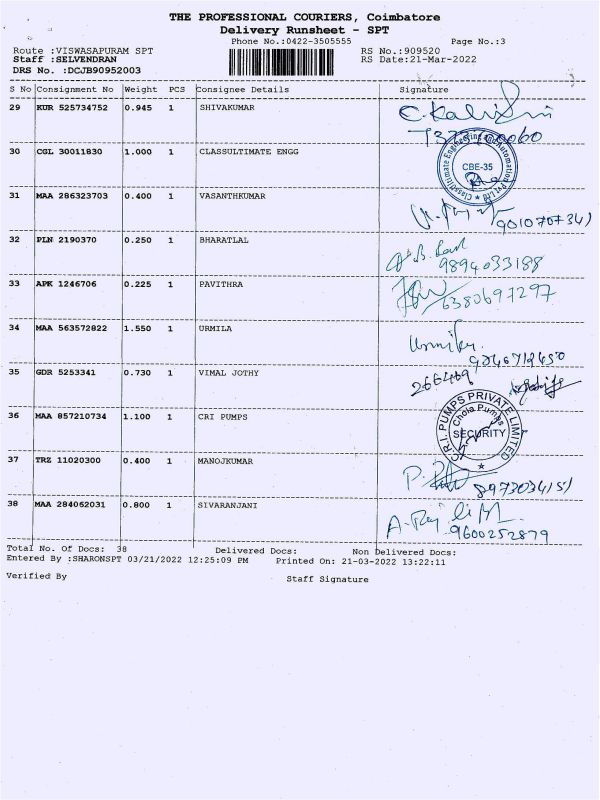 THE PROFESSIONAL COURIERS, Coimbatore
Delivery Runsheet - SPT
Phone No.:0422-3505555 Page No.:3
Route :VISWASAPURAM SPT RS No.:909520
Staff :SELVENDRAN RS Date:21-Mar-2022
DRS No. :DCJB90952003
S No Consignment No Weight PCS Consignee Details Signature
29 KUR 525734752 0.945 1 SHIVAKUMAR
30 CGL 30011830 1.000 1 CLASSULTIMATE ENGG
CBE-35
31 MAA 286323703 0.400 1 VASANTHKUMAR
32 PLN 2190370 0.250 1 BHARATLAL
9894033188
33 APK 1246706 0.225 1 PAVITHRA
6380697297
34 MAA 563572822 1.550 1 URMILA
35 GDR 5253341 0.730 1 VIMAL JOTHY
266469
36 MAA 857210734 1.100 1 CRI PUMPS
C.R.I. PUMPS PRIVATE LIMITED
Chola Pumps
SECURITY
37 TRZ 11020300 0.400 1 MANOJKUMAR
38 MAA 284062031 0.800 1 SIVARANJANI
9600252879
Total No. Of Docs: 38 Delivered Docs: Non Delivered Docs:
Entered By :SHARONSPT 03/21/2022 12:25:09 PM Printed On: 21-03-2022 13:22:11
Verified By Staff Signature